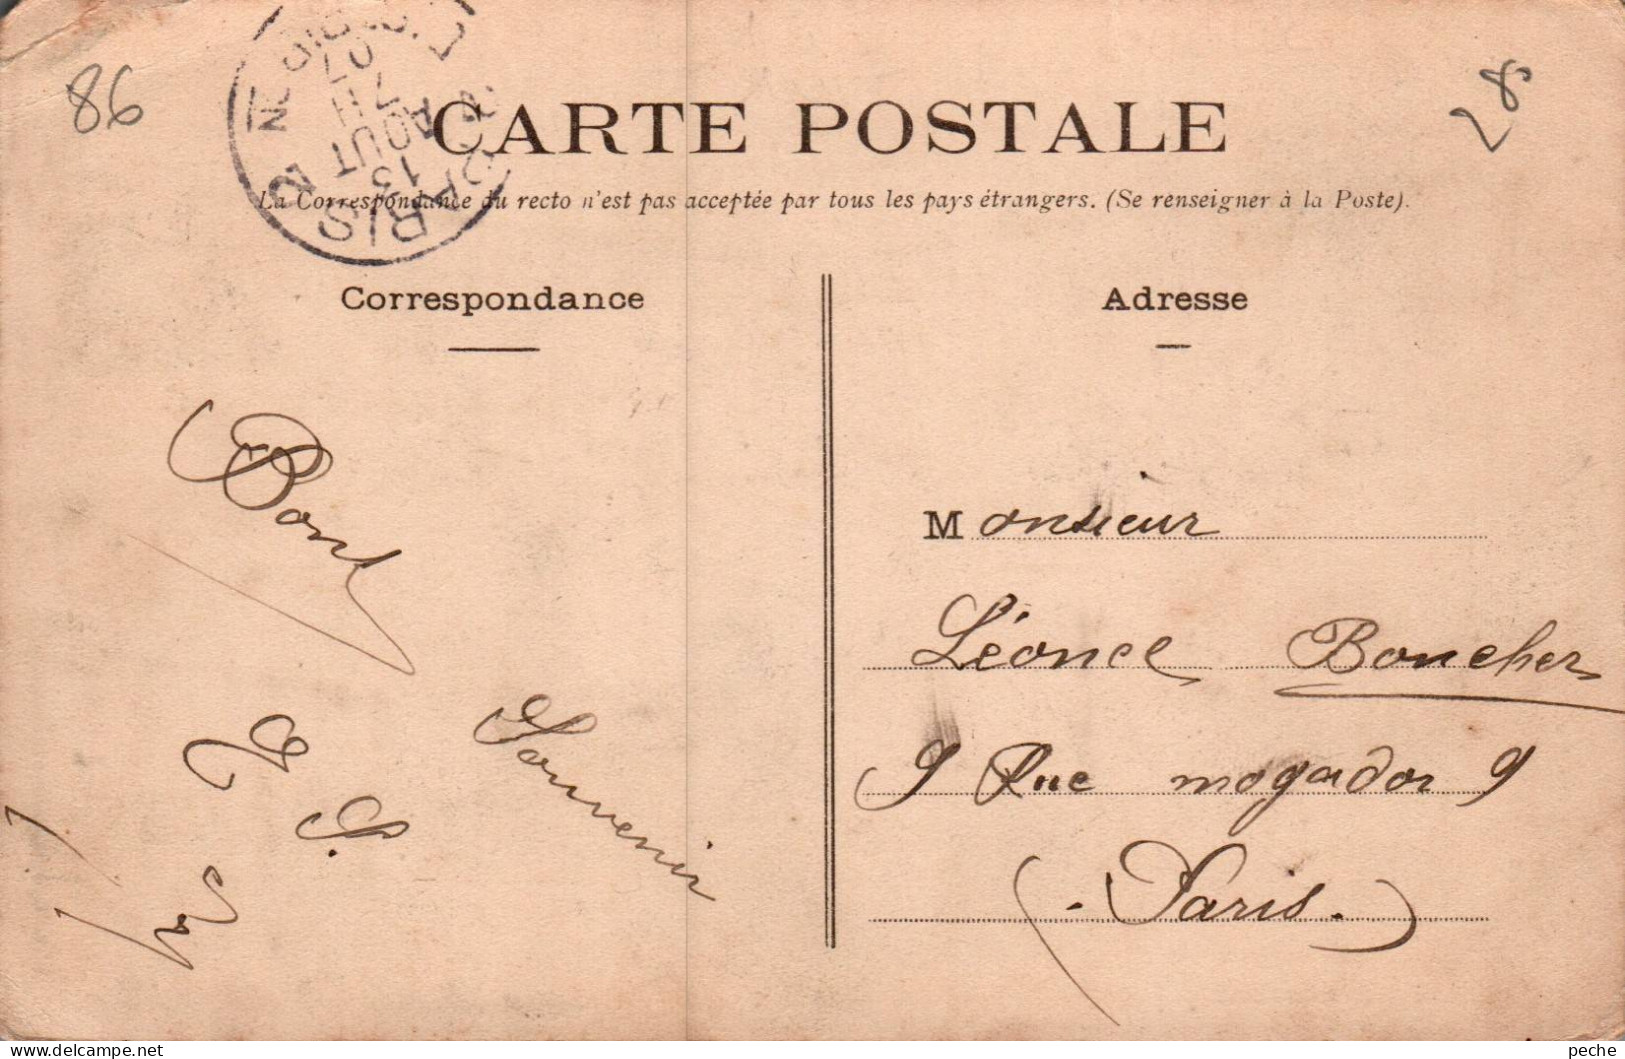 86
28
CARTE POSTALE
La Correspondance du recto n'est pas acceptée par tous les pays étrangers. (Se renseigner à la Poste).
PARIS
13
AOUT
07
Correspondance
Adresse
Souvenir
Monsieur
Léonce Boucher
9 Rue mogador 9
(. Paris. )
www.delcampe.net
peche